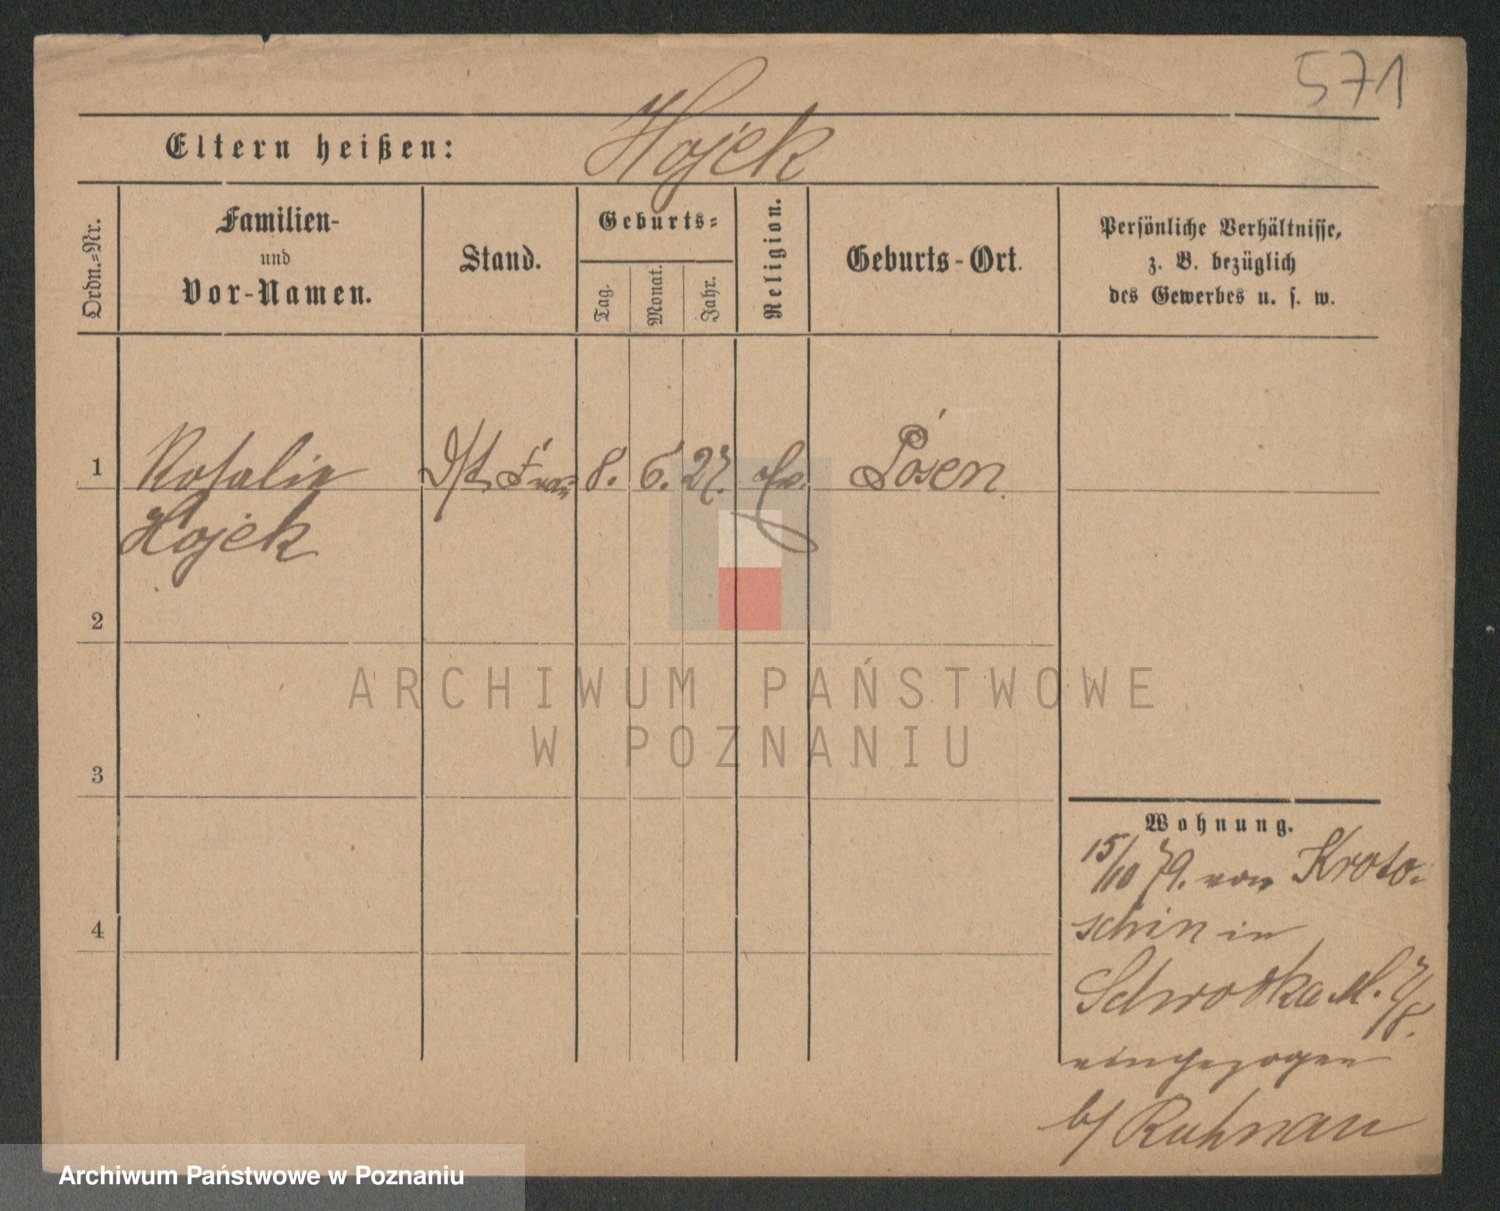 571
Eltern heißen: Hojek
Ordn.=Nr.
Familien-
und
Vor-Namen.
Stand.
Geburts=
Tag.
Monat.
Jahr.
Religion.
Geburts-Ort.
Persönliche Verhältnisse,
z. B. bezüglich
des Gewerbes u. s. w.
1 Rosalie Frau 8. 6. 27. Posen
Hojek
2
3
4
Wohnung.
15/10 79. von Kroto-
schin in
Schrodka M. 7/8.
eingezogen
b/ Ruhnau
ARCHIWUM PAŃSTWOWE
W POZNANIU
Archiwum Państwowe w Poznaniu